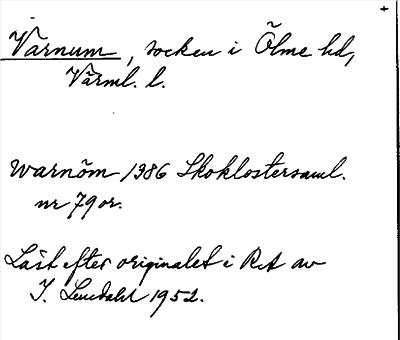 Värnum, socken i Ölme hd,
Värml. l.
warnöm 1386 Skoklostersaml.
nr 79 or.
Läst efter originalet i RA av
I. Lundahl 1952.